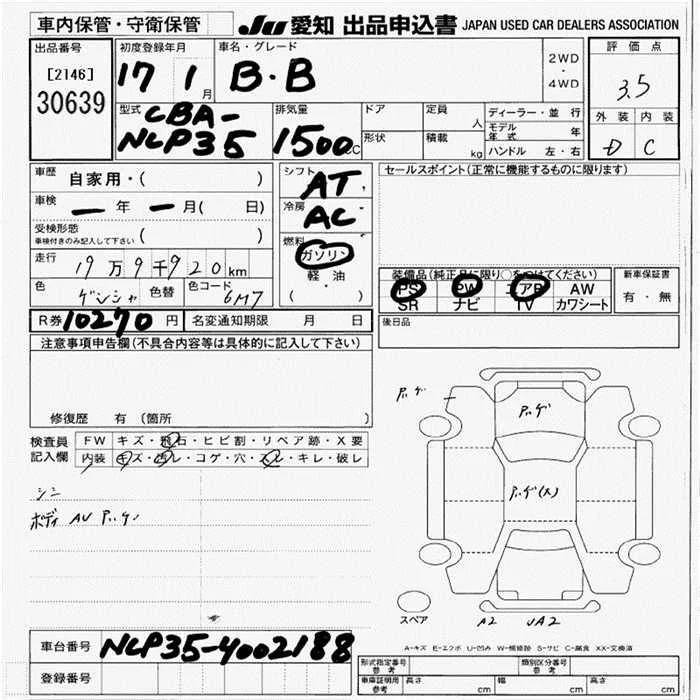 車内保管・守衛保管
JU 愛知 出品申込書 JAPAN USED CAR DEALERS ASSOCIATION
出品番号
[2146]
30639
初度登録年月
17 1月
車名・グレード
B・B
2WD
・
4WD
評価点
3.5
外装 内装
D C
型式
CBA-
NCP35
排気量
1500cc
ドア
形状
定員
人
積載
kg
ディーラー・並行
モデル年式 年
ハンドル 左・右
車歴
自家用・( )
車検
ー年ー月( 日)
受検形態
車検付きのみ記入して下さい ( )
走行
19万9千920km
色
ゲンシャ
色替
色コード
6M7
シフト
AT
冷房
AC
燃料
ガソリン
軽油
( ・ )
セールスポイント(正常に機能するものに限ります)
装備品(純正品に限り○をつけてください)
PS PW エアB AW
SR ナビ TV カワシート
新車保証書
有・無
後日品
R券10270円
名変通知期限 月 日
注意事項申告欄(不具合内容等は具体的に記入して下さい)
修復歴 有 (箇所 )
検査員
記入欄
FW キズ・飛石・ヒビ割・リペア跡・X要
内装 キズ・汚レ・コゲ・穴・スレ・キレ・破レ
シミ
ボディ AU
スペア
A2 UA2
A-キズ E-エクボ U-凹み W-補修跡 S-サビ C-腐食 XX-交換済
車台番号
NCP35-4002188
登録番号
形式指定番号
参考
類別区分番号
参考
車庫証明用
参考
長さ cm 幅 cm 高さ cm